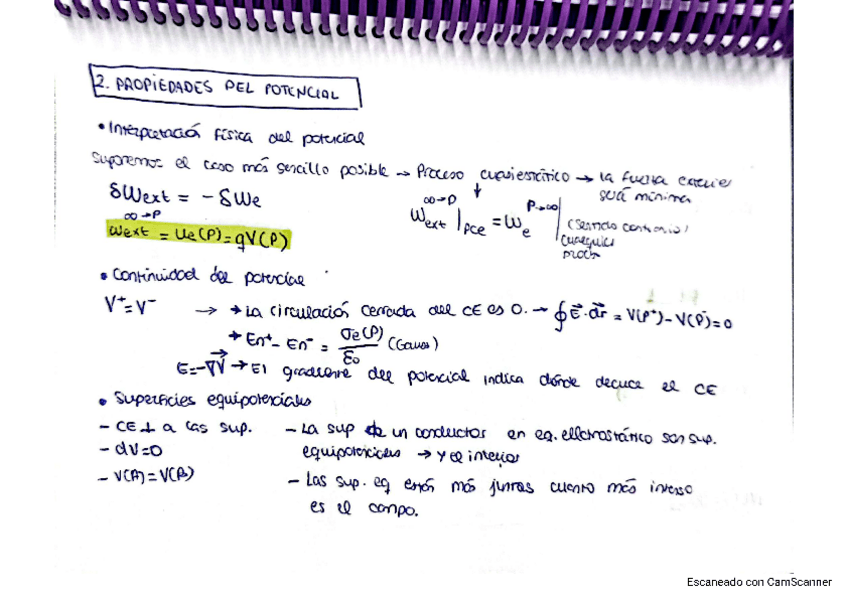 2. PROPIEDADES DEL POTENCIAL
• Interpretación física del potencial
Suponemos el caso más sencillo posible → Proceso cuasiestático → la fuerza
será mínima
δWext = - δWe
Wext ∞→P |PCE = We P→∞ (Sentido contrario)
Wext ∞→P = Ue(P) = qV(P)
• Continuidad del potencial
V⁺ = V⁻ → → La circulación cerrada del CE es 0. → ∮ E⃗·dr⃗ = V(P⁺) - V(P⁻) = 0
→ En⁺ - En⁻ = σe(P)/ε0 (Gauss)
E = -∇⃗V → El gradiente del potencial indica dónde decrece el CE
• Superficies equipotenciales
- CE ⊥ a las sup.
- dV=0
- V(A) = V(B)
- La sup de un conductor en eq. electrostático son sup.
equipotenciales → y el interior
- Las sup. eq están más juntas cuanto más intenso
es el campo.
Escaneado con CamScanner